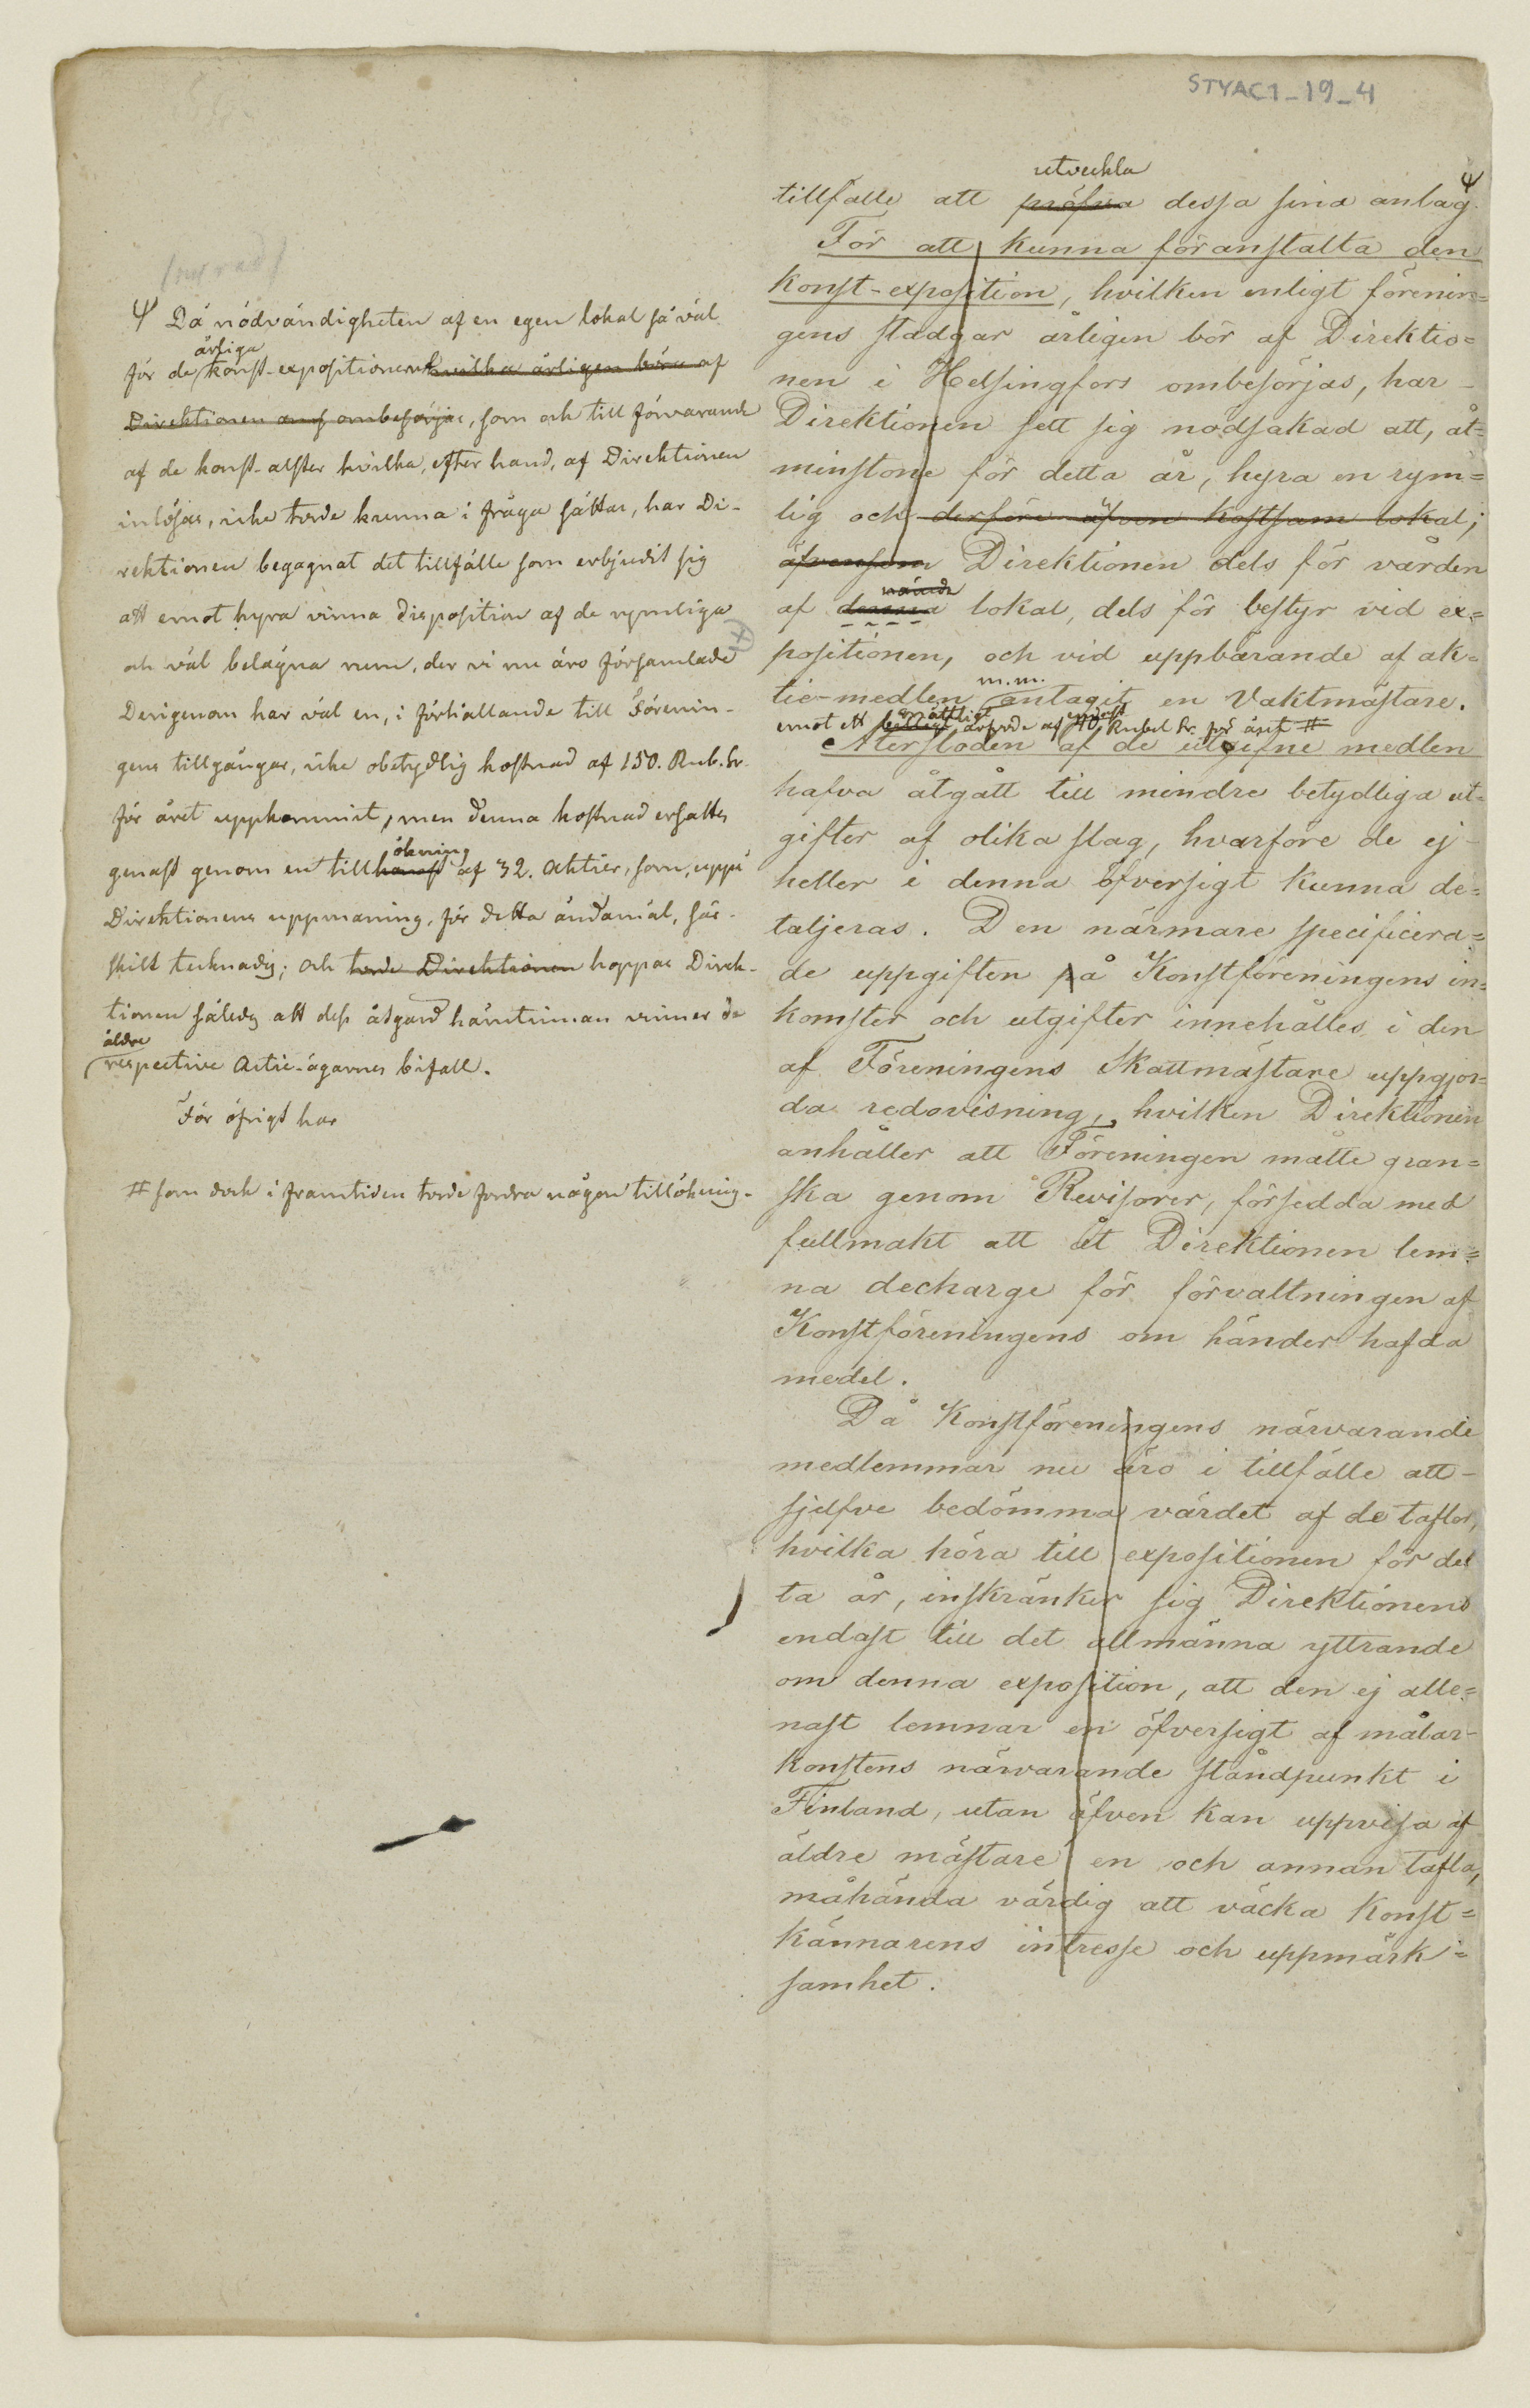 STYAC1_19_4
utveckla
tillfälle att pröfva dessa sina anlag. Ψ
För att kunna föranstalta den
konst-exposition, hvilken enligt förenin=
gens stadgar årligen bör af Direktio=
nen i Helsingfors ombesörjas, har
Direktionen sett sig nödsakad att, åt=
minstone för detta år, hyra en rym=
lig och derföre äfven kostsam lokal;
äfvensom Direktionen dels för vården
nämde
af denna lokal, dels för bestyr vid ex=
positionen, och vid uppbärande af ak=
m.m.
tie-medlen antagit en Vaktmästare.
måttligt endast
emot ett billigt arfvode af 40 Rubel Sr. för året #
Återstoden af de utgifne medlen
hafva åtgått till mindre betydliga ut=
gifter af olika slag, hvarföre de ej
heller i denna öfversigt kunna de=
taljeras. Den närmare specificera=
de uppgiften på Konstföreningens in=
komster och utgifter innehålles i den
af Föreningens Skattmästare uppgjor=
da redovisning, hvilken Direktionen
anhåller att Föreningen måtte gran=
ska genom Revisorer, försedda med
fullmakt att åt Direktionen lem=
na decharge för förvaltningen af
Konstföreningens om händer hafda
medel.
Då Konstföreningens närvarande
medlemmar nu äro i tillfälle att
sjelfve bedömma värdet af de taflor,
hvilka höra till expositionen för det
ta år, inskränker sig Direktionens
endast till det allmänna yttrande
om denna exposition, att den ej alle=
nast lemnar en öfversigt af målar-
konstens närvarande ståndpunkt i
Finland, utan äfven kan uppvisa af
äldre mästare en och annan tafla,
måhända värdig att väcka Konst=
kännarens intresse och uppmärk=
samhet.
Ψ Då nödvändigheten af en egen lokal så väl
årliga
för de konst-expositioner hvilka årligen böra af
Direktionen ombesörjas, som och till förvarande
af de konst-alster hvilka, efter hand, af Direktionen
inlösas, icke torde kunna i fråga sättas, har Di-
rektionen begagnat det tillfälle som erbjudit sig
att emot hyra vinna disposition af de rymliga
och väl belägna rum, der vi nu äro församlade
Derigenom har väl en, i förhållande till Förenin-
gens tillgångar, icke obetydlig kostnad af 150. Rub. Sr.
för året uppkommit, men denna kostnad ersattes
ökning
genast genom en till af 32. Aktier, som, uppå
Direktionens uppmaning, för detta ändamål, sär-
skilt tecknades; och torde Direktionen hoppas Direk-
tionen således att dess åtgärd häruti vinner de
äldre
respective Actie-ägarnes bifall.
För öfrigt har
# som dock i framtiden torde fordra någon tillökning.